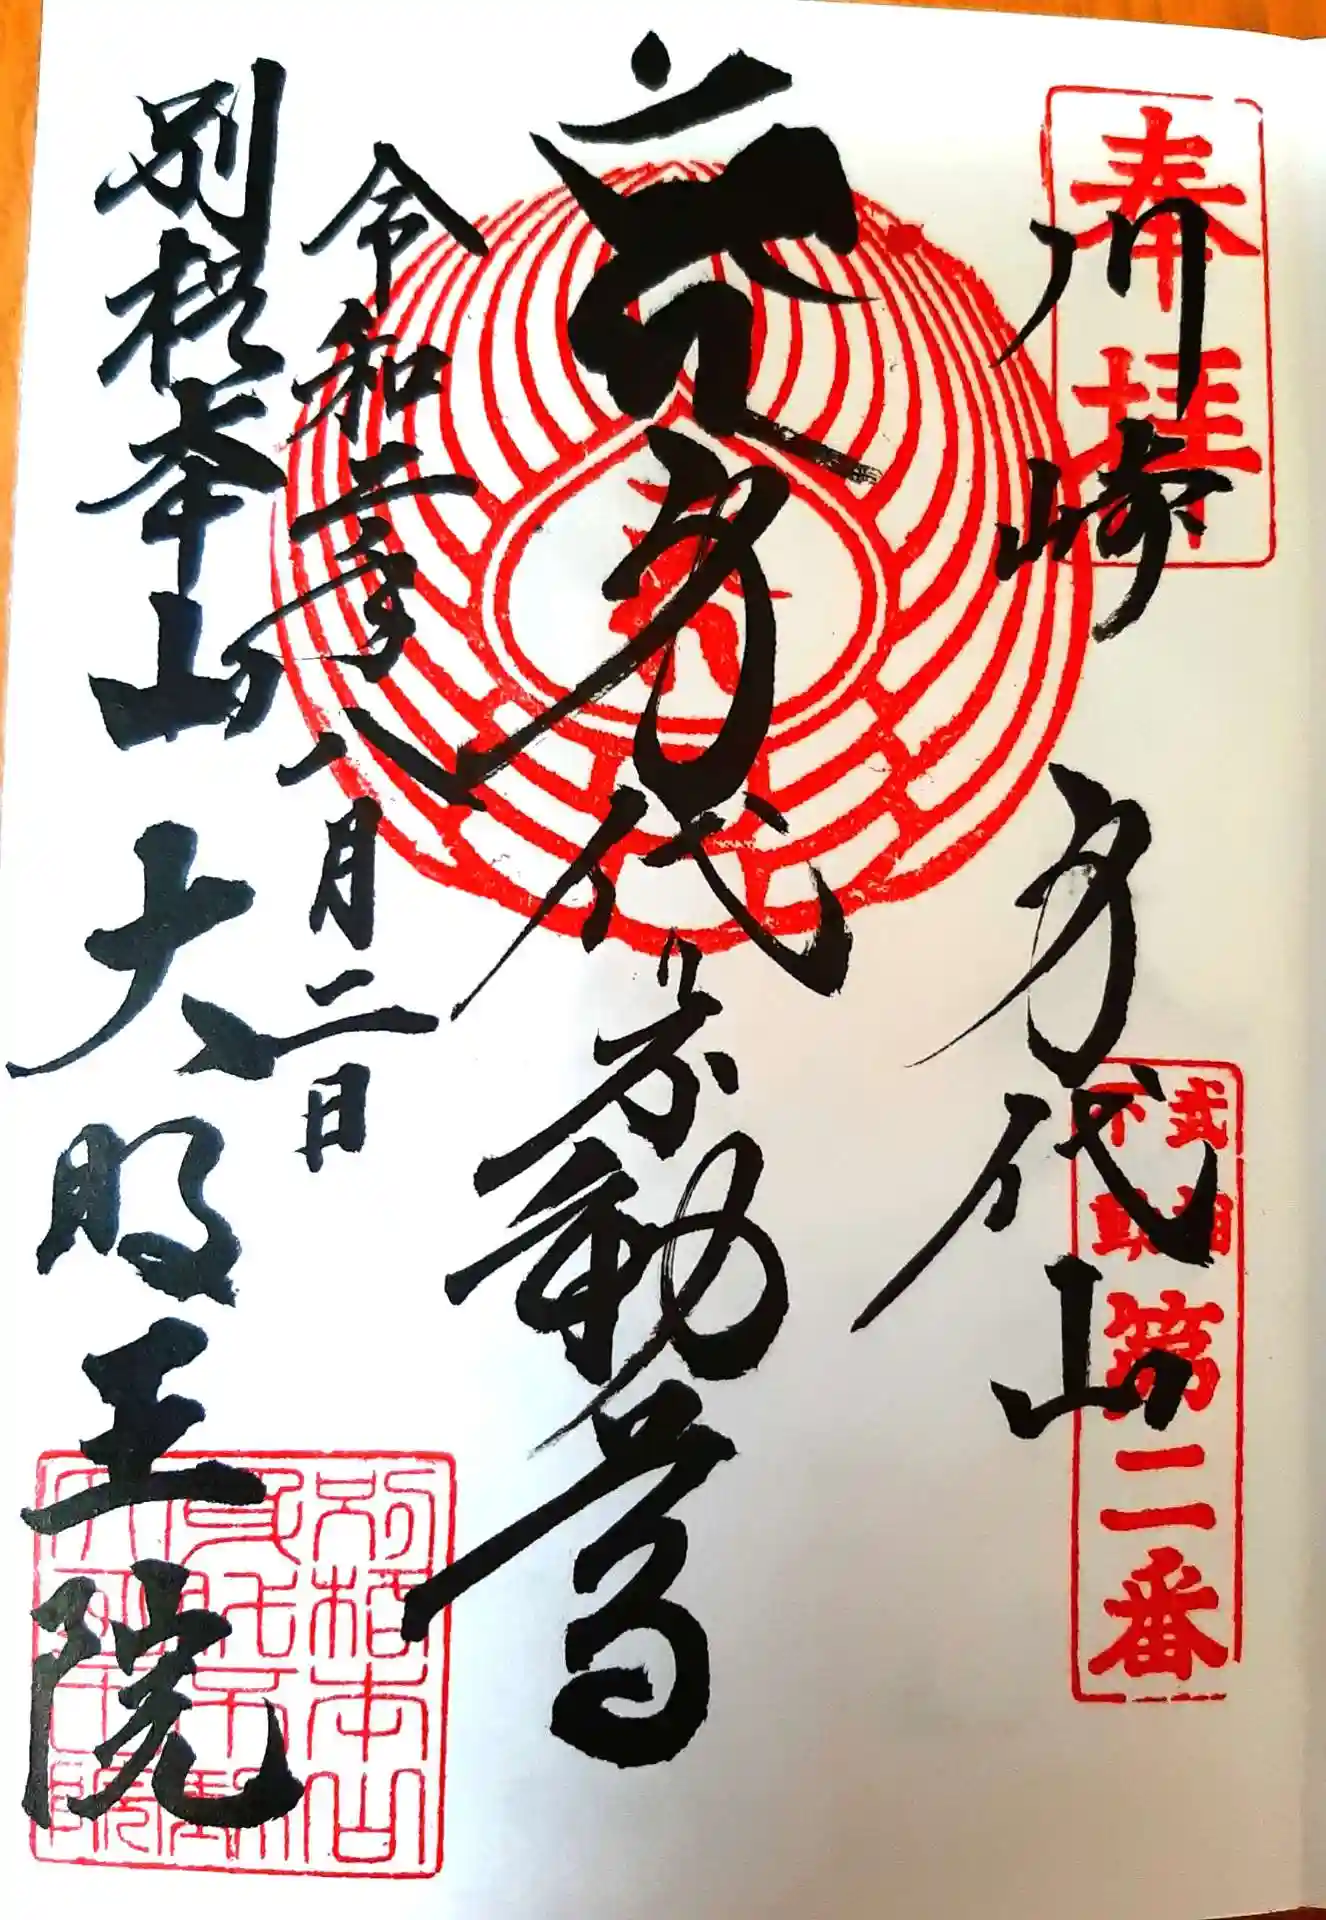 奉拝
川崎 万代山
武相
不動
第二番
万代不動尊
令和二年八月二日
別格本山 大明王院
別格本山
万代不動
大明王院